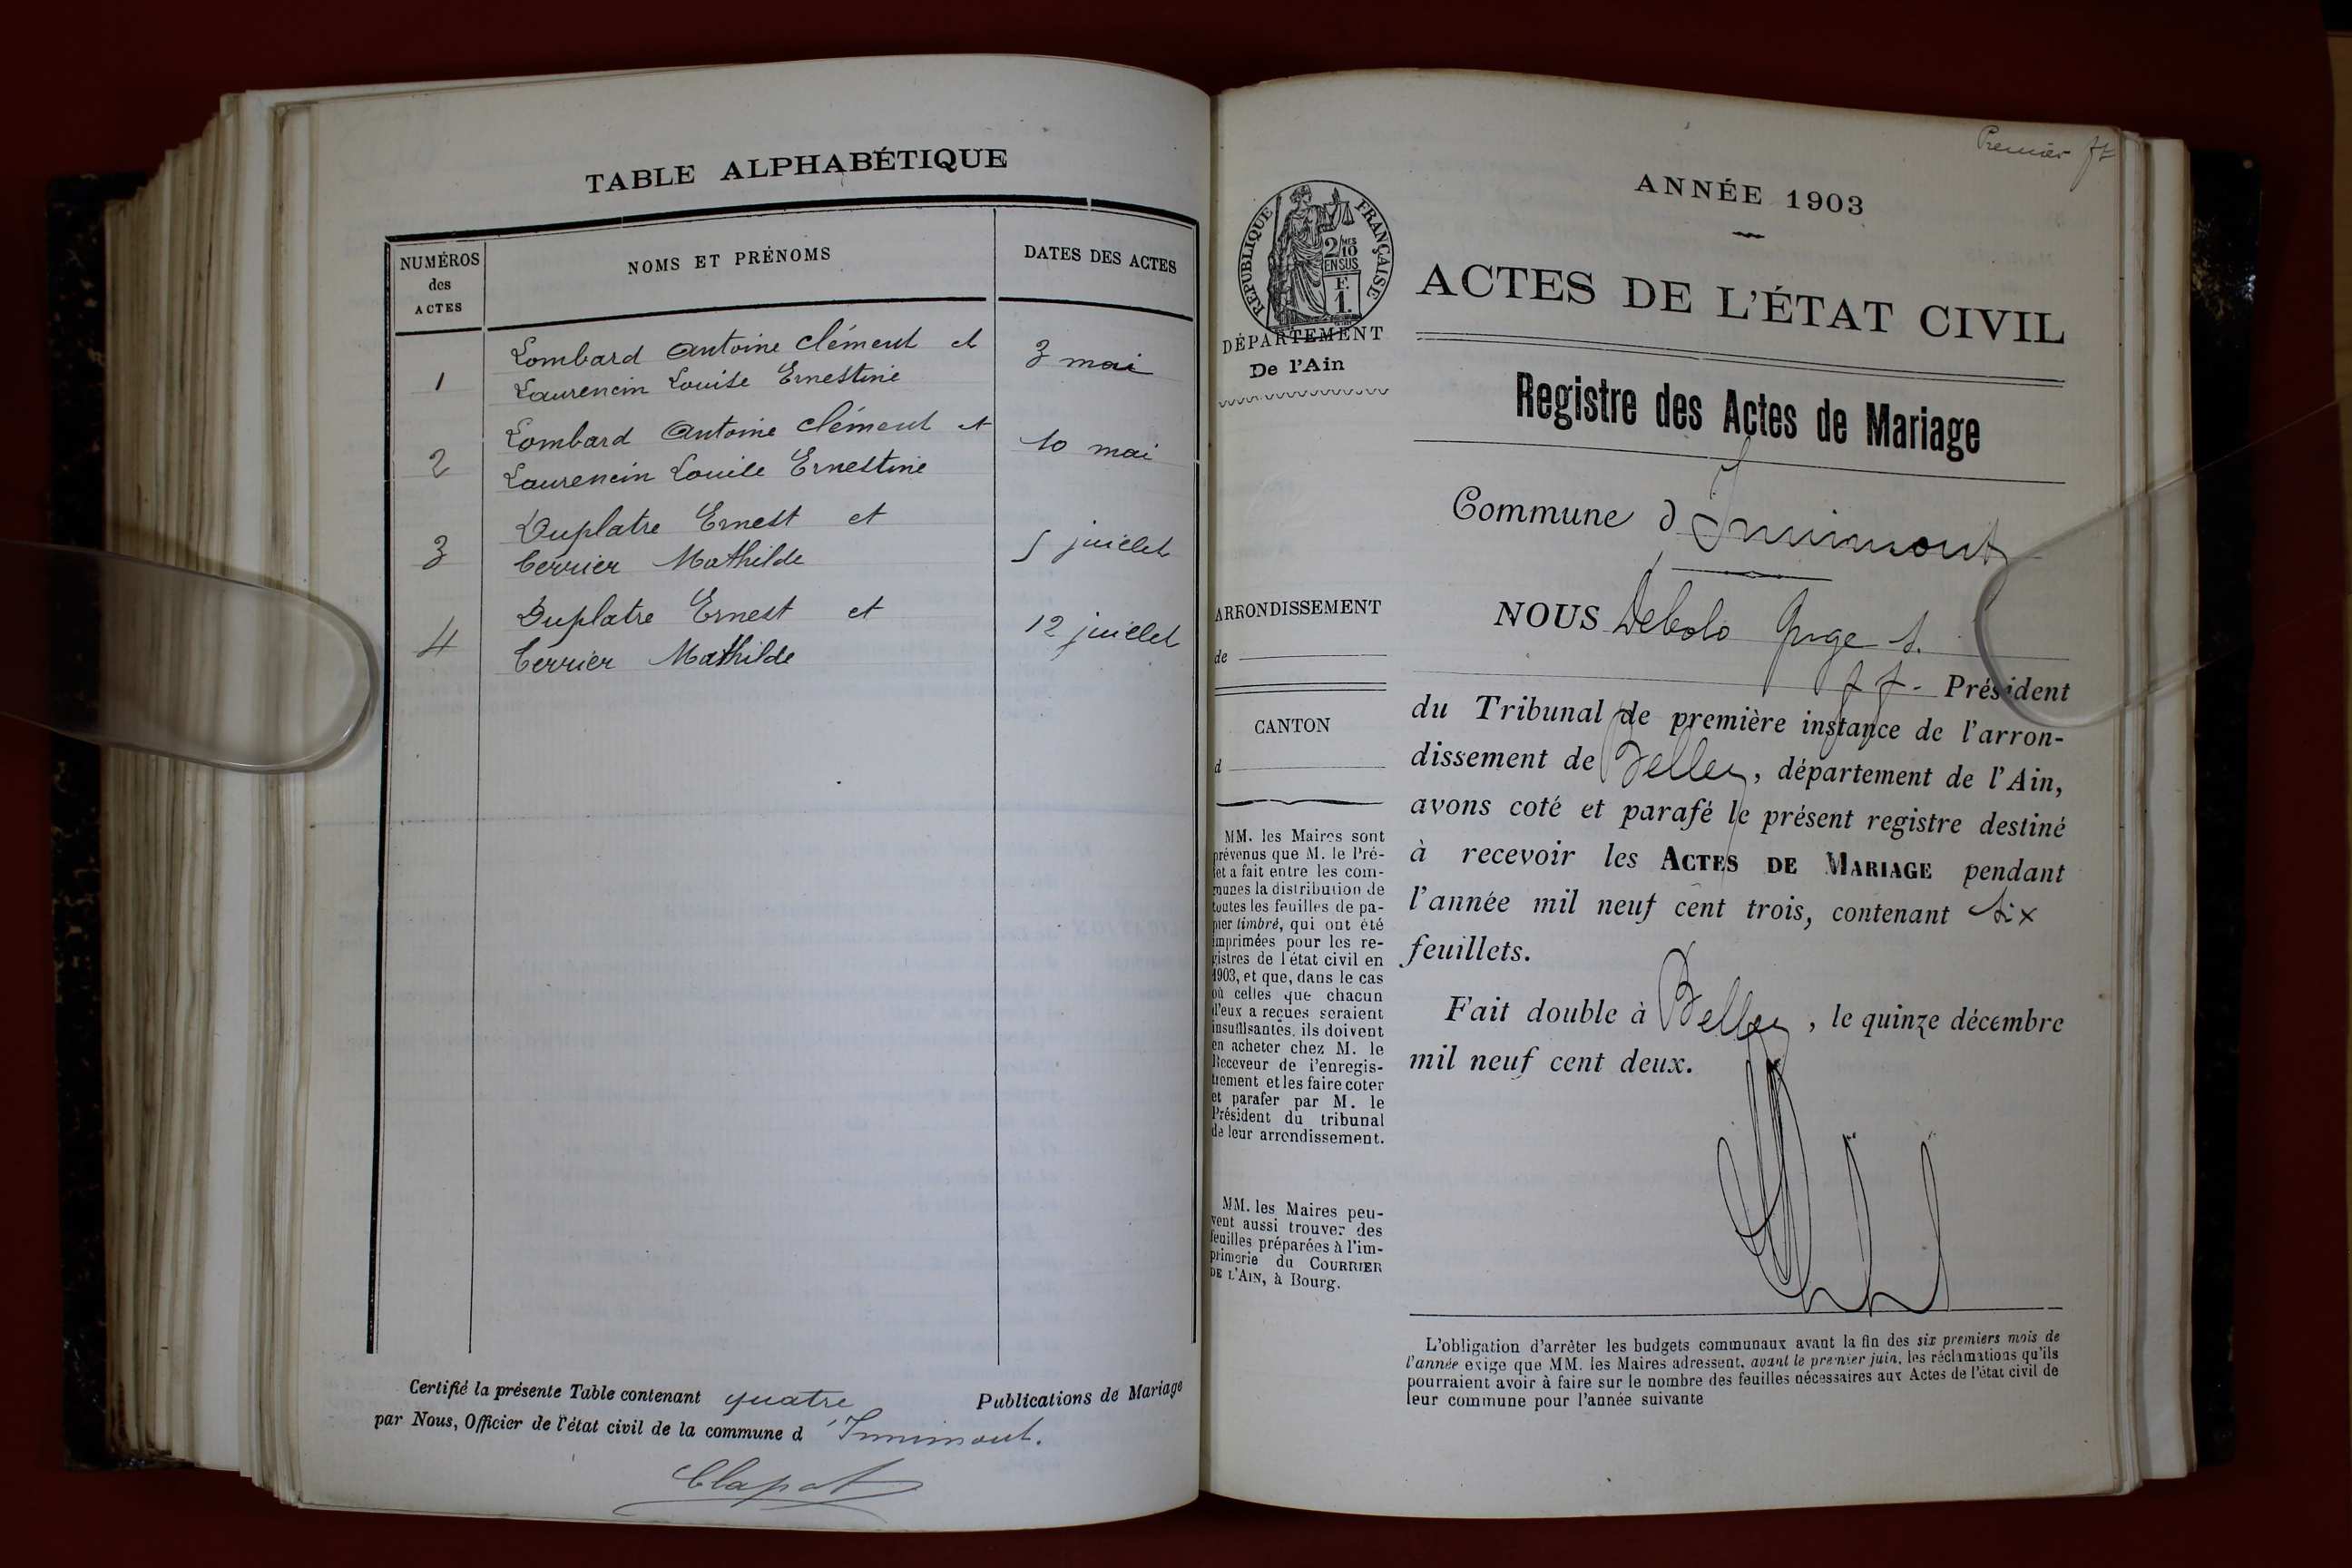 TABLE ALPHABÉTIQUE
NUMÉROS
des
ACTES
NOMS ET PRÉNOMS
DATES DES ACTES
1
Lombard Antoine Clément et
Laurencin Louise Ernestine
3 mai
2
Lombard Antoine Clément et
Laurencin Louise Ernestine
10 mai
3
Duplatre Ernest et
Cerrier Mathilde
5 juillet
4
Duplatre Ernest et
Cerrier Mathilde
12 juillet
Certifié la présente Table contenant quatre Publications de Mariage
par Nous, Officier de l'état civil de la commune d'Innimont.
Clapot
Premier ft
ANNÉE 1903
RÉPUBLIQUE FRANÇAISE
2/MES
10
EN SUS
F.
1.
ACTES DE L'ÉTAT CIVIL
DÉPARTEMENT
De l'Ain
Registre des Actes de Mariage
Commune d'Innimont
ARRONDISSEMENT
de
CANTON
d
MM. les Maires sont
prévenus que M. le Pré-
fet a fait entre les com-
munes la distribution de
toutes les feuilles de pa-
pier timbré, qui ont été
imprimées pour les re-
gistres de l'état civil en
1903, et que, dans le cas
où celles que chacun
d'eux a reçues seraient
insuffisantes, ils doivent
en acheter chez M. le
Receveur de l'enregis-
trement et les faire coter
et parafer par M. le
Président du tribunal
de leur arrondissement.
MM. les Maires peu-
vent aussi trouver des
feuilles préparées à l'im-
primerie du COURRIER
DE L'AIN, à Bourg.
NOUS Debolo Juge S.
ff. Président
du Tribunal de première instance de l'arron-
dissement de Belley, département de l'Ain,
avons coté et parafé le présent registre destiné
à recevoir les ACTES DE MARIAGE pendant
l'année mil neuf cent trois, contenant six
feuillets.
Fait double à Belley, le quinze décembre
mil neuf cent deux.
L'obligation d'arrêter les budgets communaux avant la fin des six premiers mois de
l'année exige que MM. les Maires adressent, avant le premier juin, les réclamations qu'ils
pourraient avoir à faire sur le nombre des feuilles nécessaires aux Actes de l'état civil de
leur commune pour l'année suivante